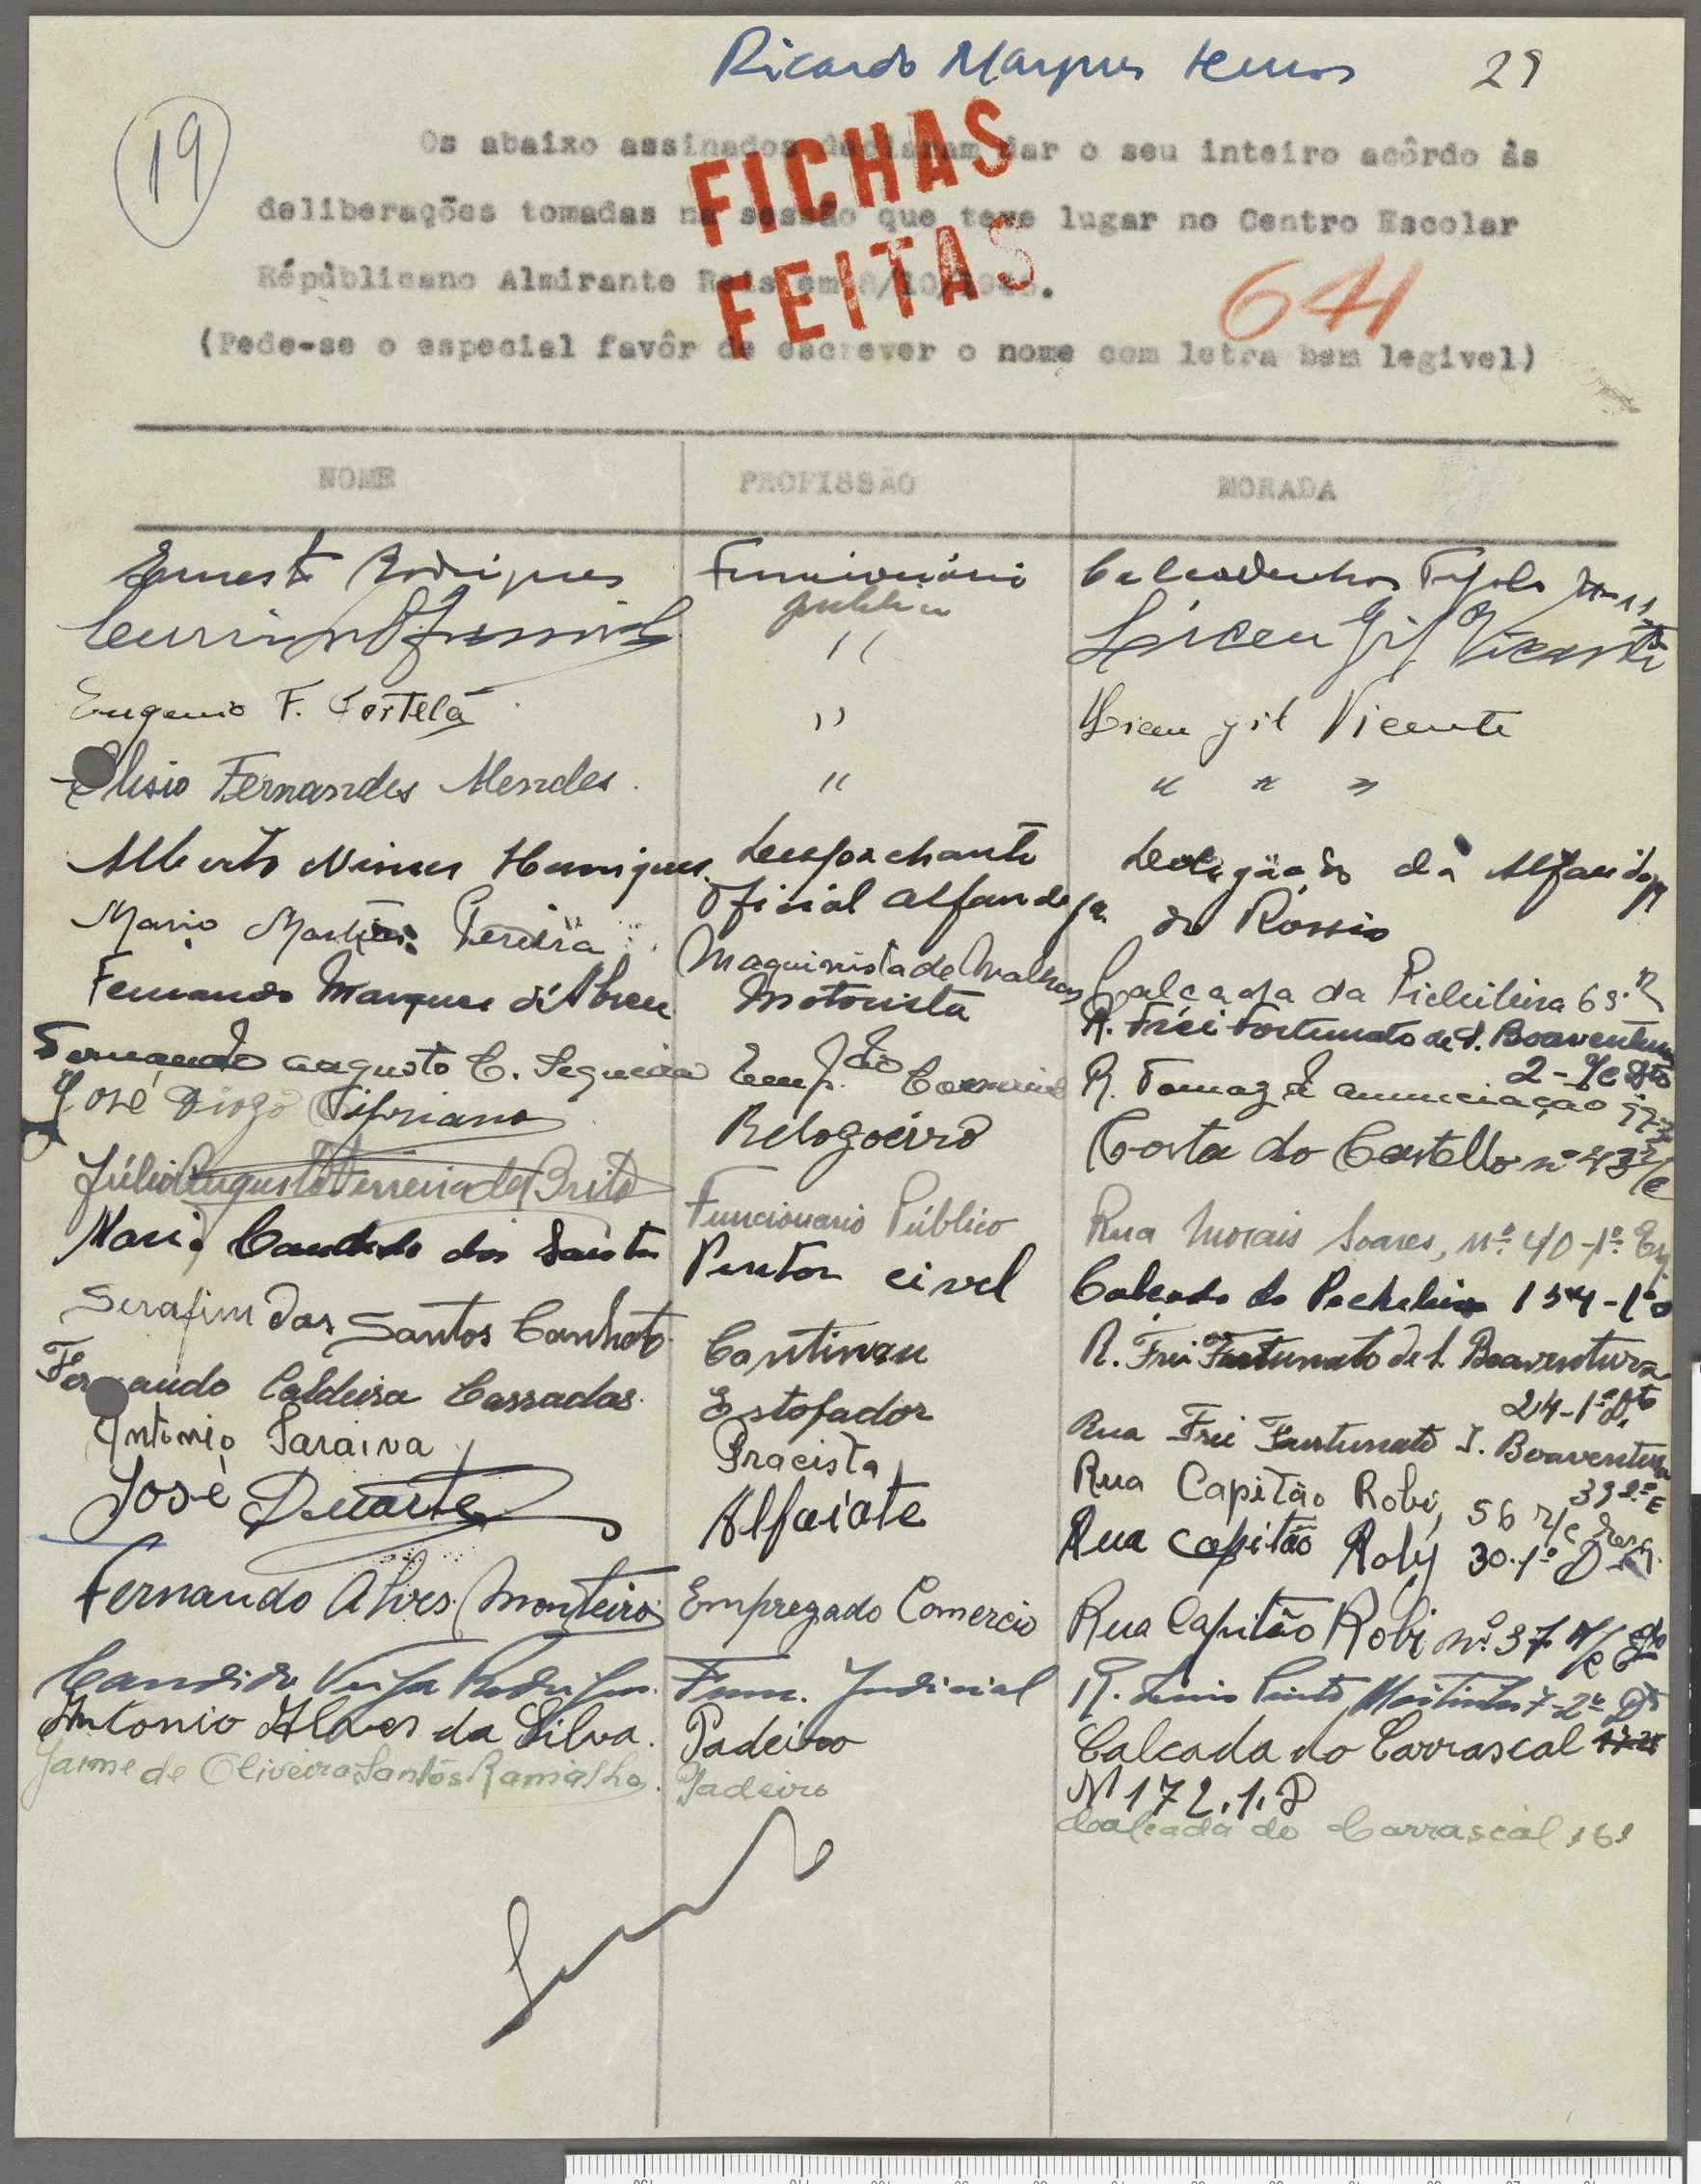 Ricardo Marques Lemos 29
19
Os abaixo assinados declaram dar o seu inteiro acôrdo ás
deliberações tomadas na sessão que teve lugar no Centro Escolar
Républicano Almirante Reis em 8/10/1945.
(Pede-se o especial favôr de escrever o nome com letra bem legivel)
FICHAS
FEITAS
641
NOME PROFISSÃO MORADA
Ernesto Rodrigues Funcionário
publico
" Liceu Gil Vicente
Eugenio F. Portelã " Liceu gil Vicente
Elisio Fernandes Mendes. " " " "
Alberto Nunes Henriques. Despachante Delegação da Alfandega
Oficial alfandega do Rossio
Mario Martins Pereira Maquinista de Malhas Calçada da Picheleira 69
Fernando Marques d'Abreu Motorista R. Frei Fortunato de S. Boaventura
2-r/c Dto
Fernando augusto C. Sequeira Emp.do Comercial R. Tomaz d anunciação
José Diogo Cipriano Relogoeiro Costa do Castello nº 43 r/c
Júlio Augusto Ferreira de Brito Funcionario Público Rua Morais Soares, nº 40-1º Esq
Mario Candido dos Santos Pintor civel Calcada do Pecheleira 154-1º
Serafim dos Santos Canhoto Continuu R. Frei Fortunato de S. Boaventura
24-1º Dto
Fernando Caldeira Cassadas. Estofador Rua Frei Furtunato S. Boaventura
39 2º E
Antonio Saraiva Pracista Rua Capitão Robi, 56 r/c Esq.
José Duarte Alfaiate Rua capitão Roby 30.1º D
Fernando Alves Monteiro Empregado Comercio Rua Capitão Robi nº 37 r/c
Candido Veiga Rodrigues. Func. Judicial R. Luis Pinto Moitinho 7-2º Dº
Antonio Alves da Silva. Padeiro Calcada do Carrascal
Nº 172.1.D
Jaime de Oliveira Santos Ramalho. Padeiro Calcada do Carrascal 161